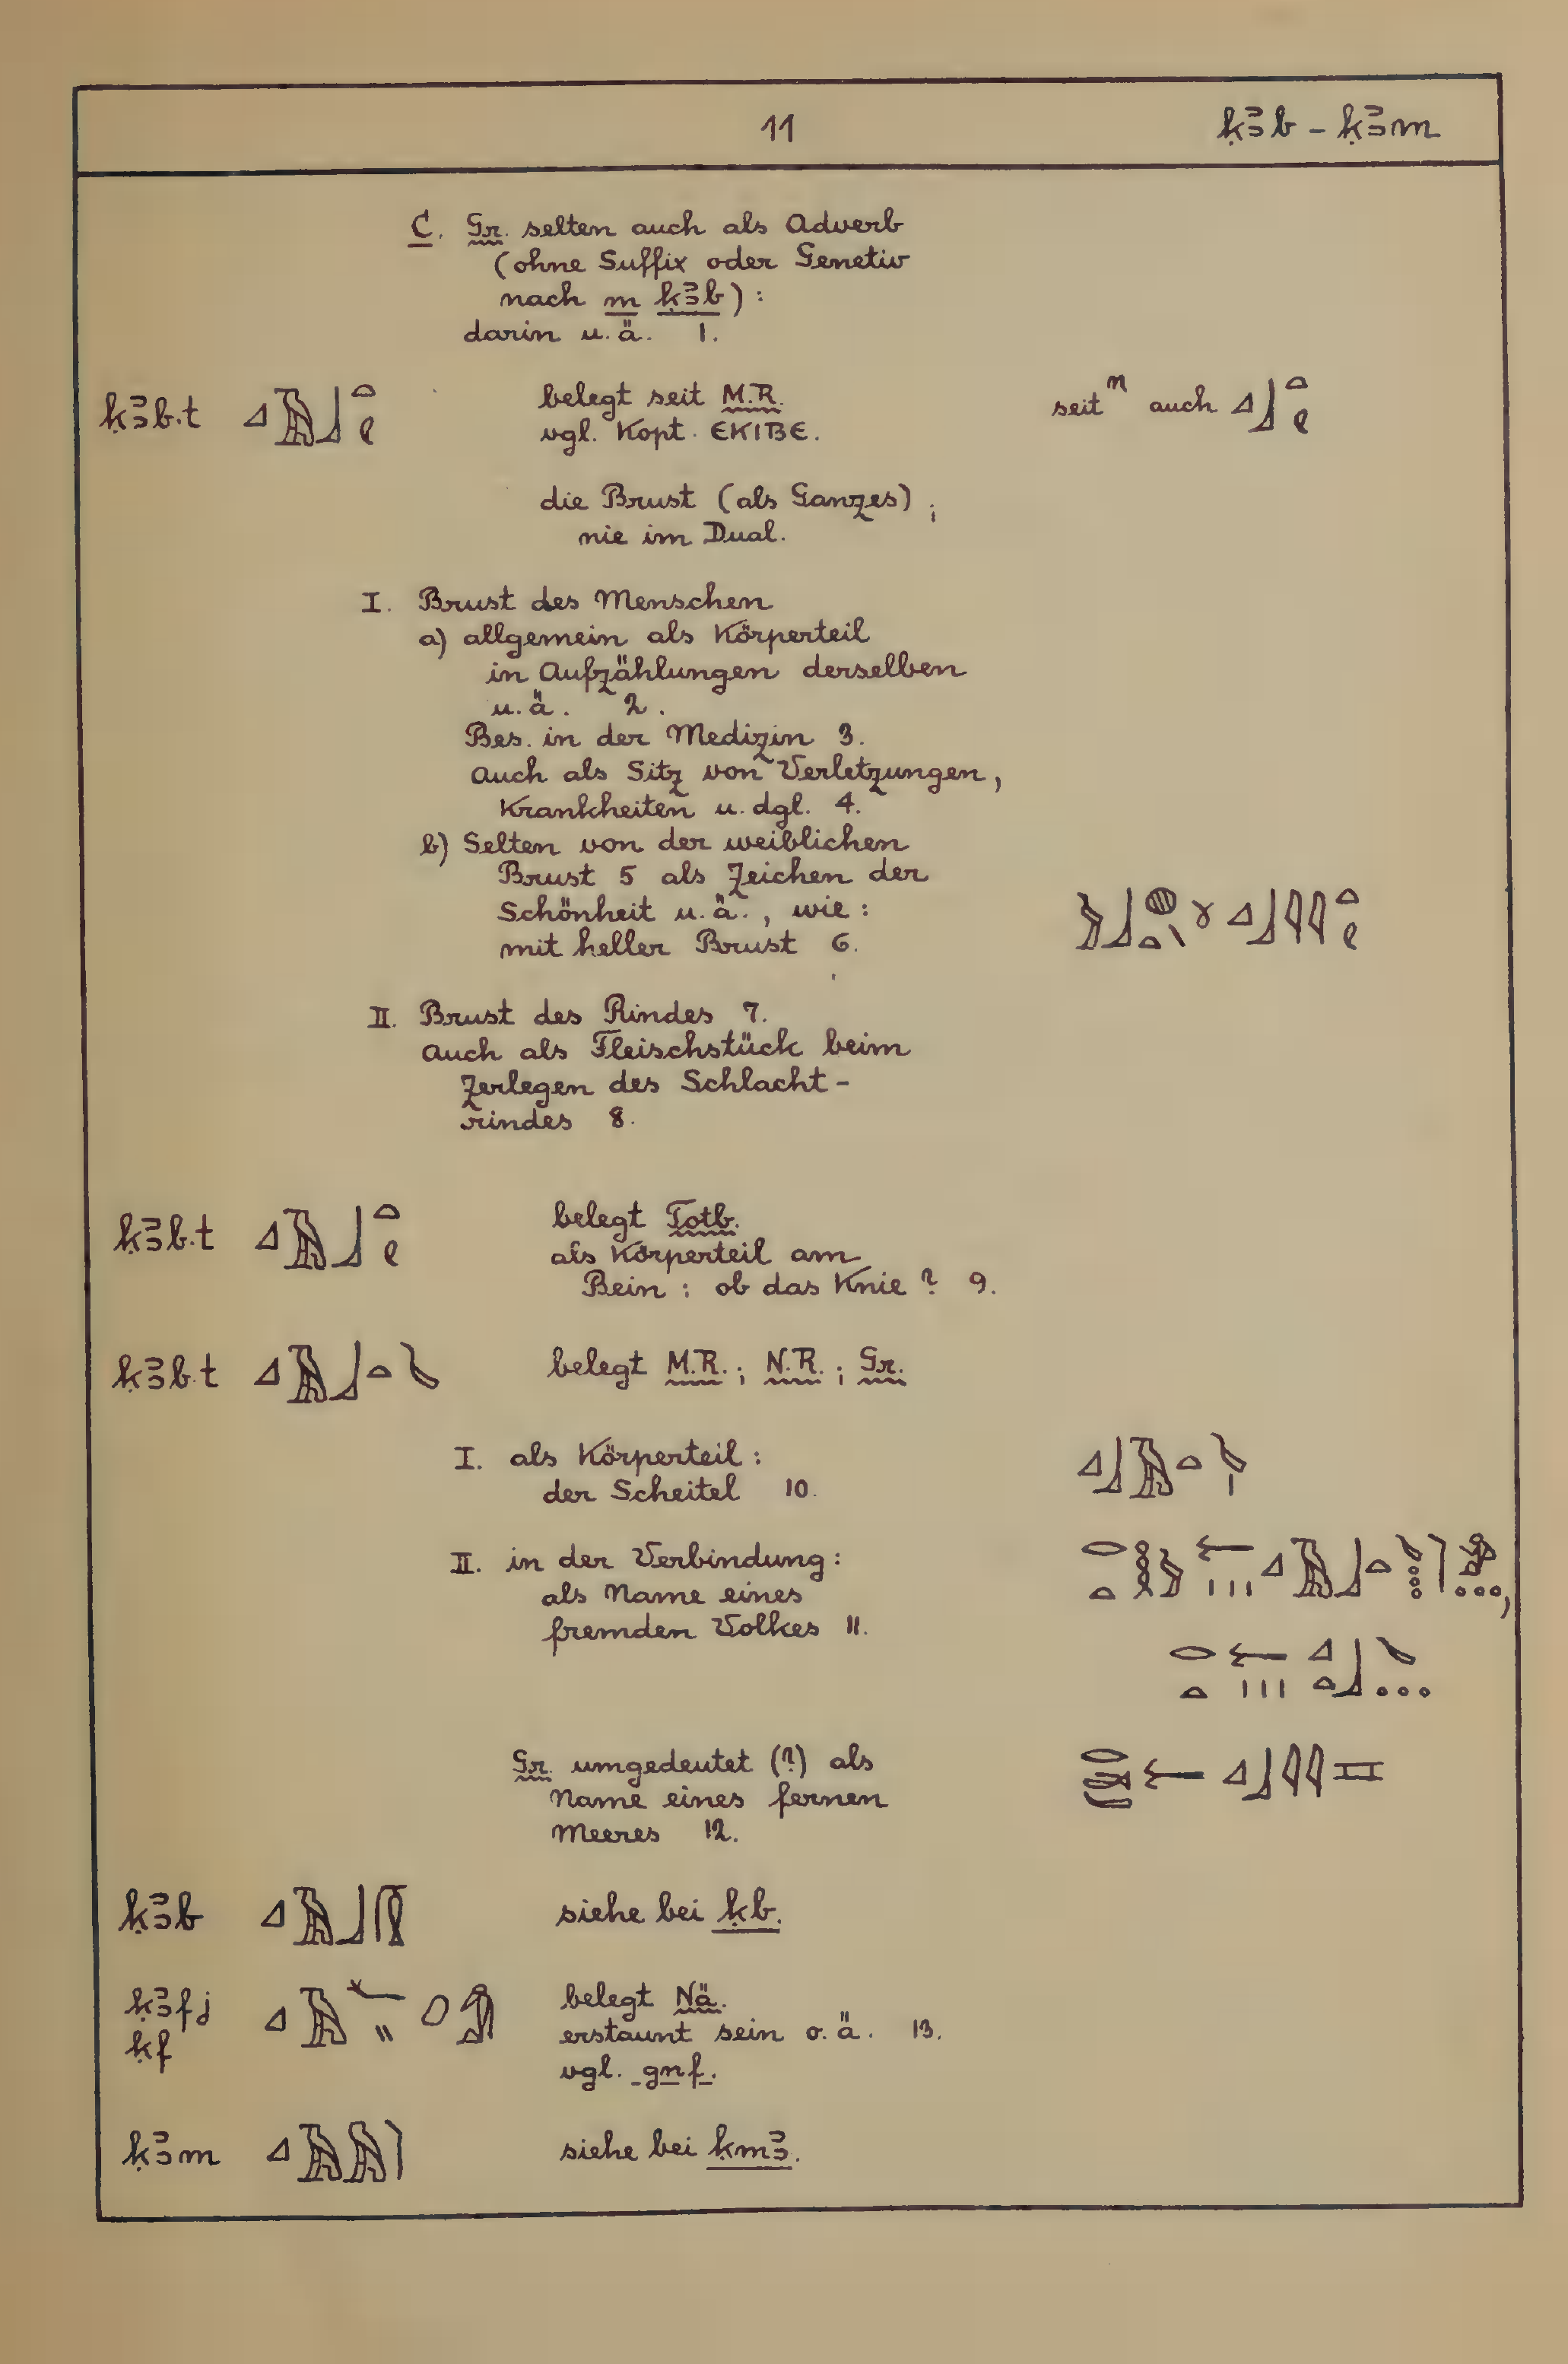 11
ḳꜣb - ḳꜣm
C. Gr. selten auch als Adverb
(ohne Suffix oder Genetiv
nach m ḳꜣb) :
darin u.ä. 1.
ḳꜣb.t
belegt seit M.R.
vgl. Kopt. ⲉⲕⲓⲃⲉ.
seit n auch
die Brust (als Ganzes) ;
nie im Dual.
I. Brust des Menschen
a) allgemein als Körperteil
in Aufzählungen derselben
u.ä. 2.
Bes. in der Medizin 3.
Auch als Sitz von Verletzungen,
Krankheiten u. dgl. 4.
b) Selten von der weiblichen
Brust 5 als Zeichen der
Schönheit u.ä., wie :
mit heller Brust 6.
II. Brust des Rindes 7.
Auch als Fleischstück beim
Zerlegen des Schlacht-
rindes 8.
ḳꜣb.t
belegt Totb.
als Körperteil am
Bein : ob das Knie ? 9.
ḳꜣb.t
belegt M.R. ; N.R. ; Gr.
I. als Körperteil :
der Scheitel 10.
II. in der Verbindung :
als Name eines
fremden Volkes 11.
Gr. umgedeutet (?) als
Name eines fernen
Meeres 12.
ḳꜣb
siehe bei ḳb.
ḳꜣfj
belegt Nä.
ḳf
erstaunt sein o.ä. 13.
vgl. gnf.
ḳꜣm
siehe bei ḳmꜣ.